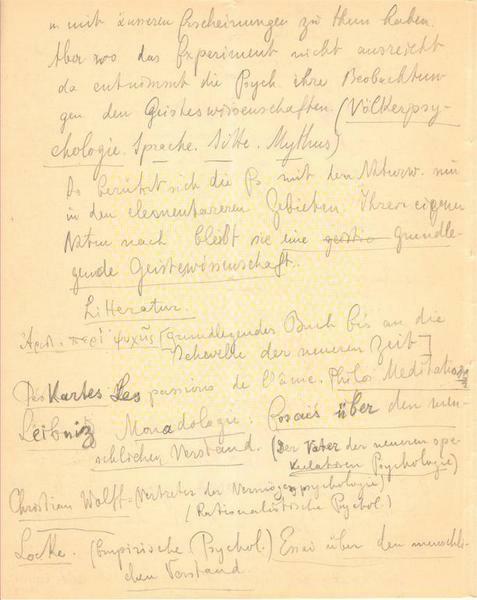 u mit äusseren Erscheinungen zu thun haben.
Aber wo das Experiment nicht ausreicht
da entnimmt die Psych. ihre Beobachtun-
gen den Geisteswissenschaften. (Völkerpsy-
chologie. Sprache. Sitte. Mythus)
So berührt sich die Ps mit den Naturw. nur
in den elementareren Gebieten. Ihrer eigenen
Natur nach bleibt sie eine geistic grundle-
gende Geisteswissenschaft.
Litteratur.
Arist. περὶ ψυχῆς [Grundlegendes Buch bis an die
Schwelle der neueren Zeit]
Des Kartes Les passions de l'âme. Philos. Meditation
Leibniz Monadologie. Essais über den men-
schlichen Verstand. (Der Vater der neueren spe-
kulativen Psychologie)
Christian Wolff. Vertreter der Vermögenspsychologie
(Rationalistische Psychol.)
Locke. (Empirische Psychol.) Essai über den menschli-
chen Verstand